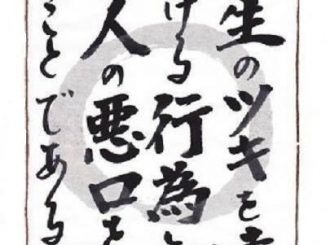 生のツキを
ける行為
人の悪口を
ことである